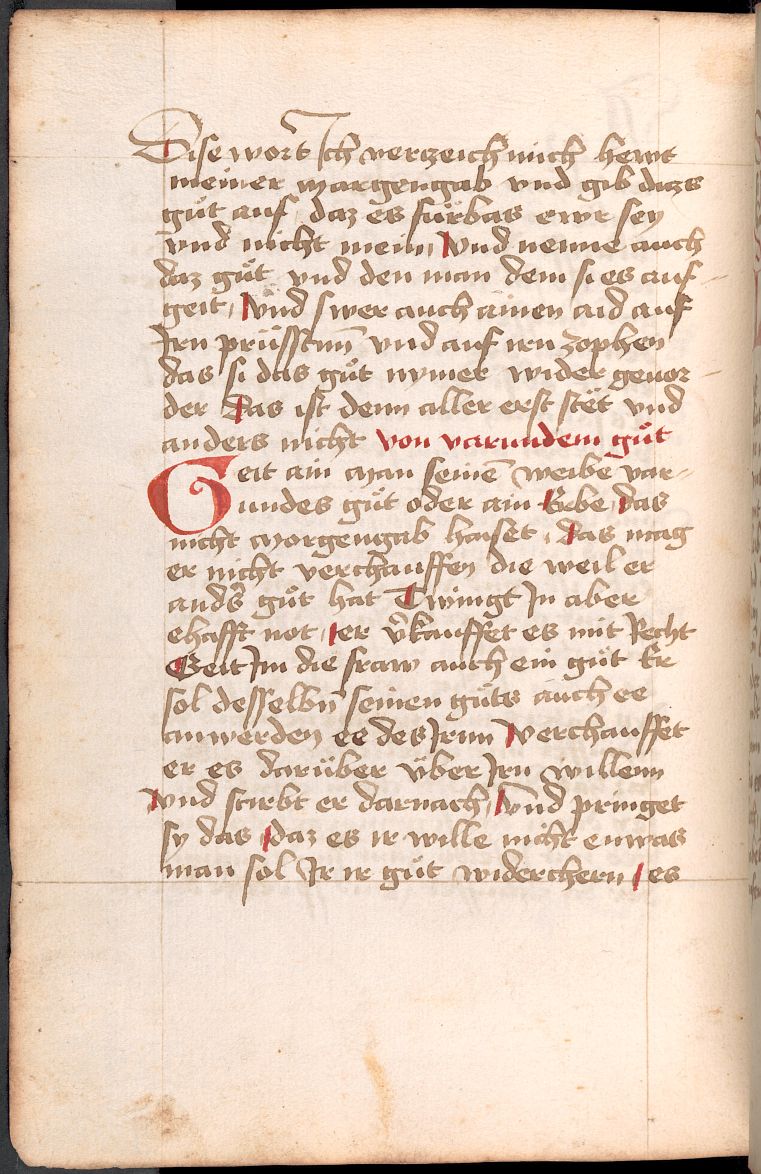 Dise wort Ich verczeich mich hewt
meiner margengab vnd gib dazs
gůt auf daz es fürbas ewr sey
vnd nicht mein, Vnd nenne auch
daz gůt vnd den man dem si es auf
geit, Vnd swer auch ainen aid auf
Irn prüssten vnd auf irn zophen
das si das gůt nymer wider gevor
der Das ist denn aller erst stët vnd
anders nicht von varundem gůt
Geit ain man seinē weibe var
undes gůt oder ain Erbe, das
nicht morgengab haiset, Das mag
er nicht verchauffen die weil er
anders gůt hat Twingt In aber
ehafft not, er v̄kauffet es mit Recht
Geit Im die fraw auch ein gůt Er
sol desselbn̄ seinen gůts auch ee
anwerden ee des Irnn Verchauffet
er es darüber über Irn willenn
Vnd stirbt er darnach, Vnd pringet
sy das, daz es ir wille nicht enwas
man sol Ir ir gůt widerchern, es